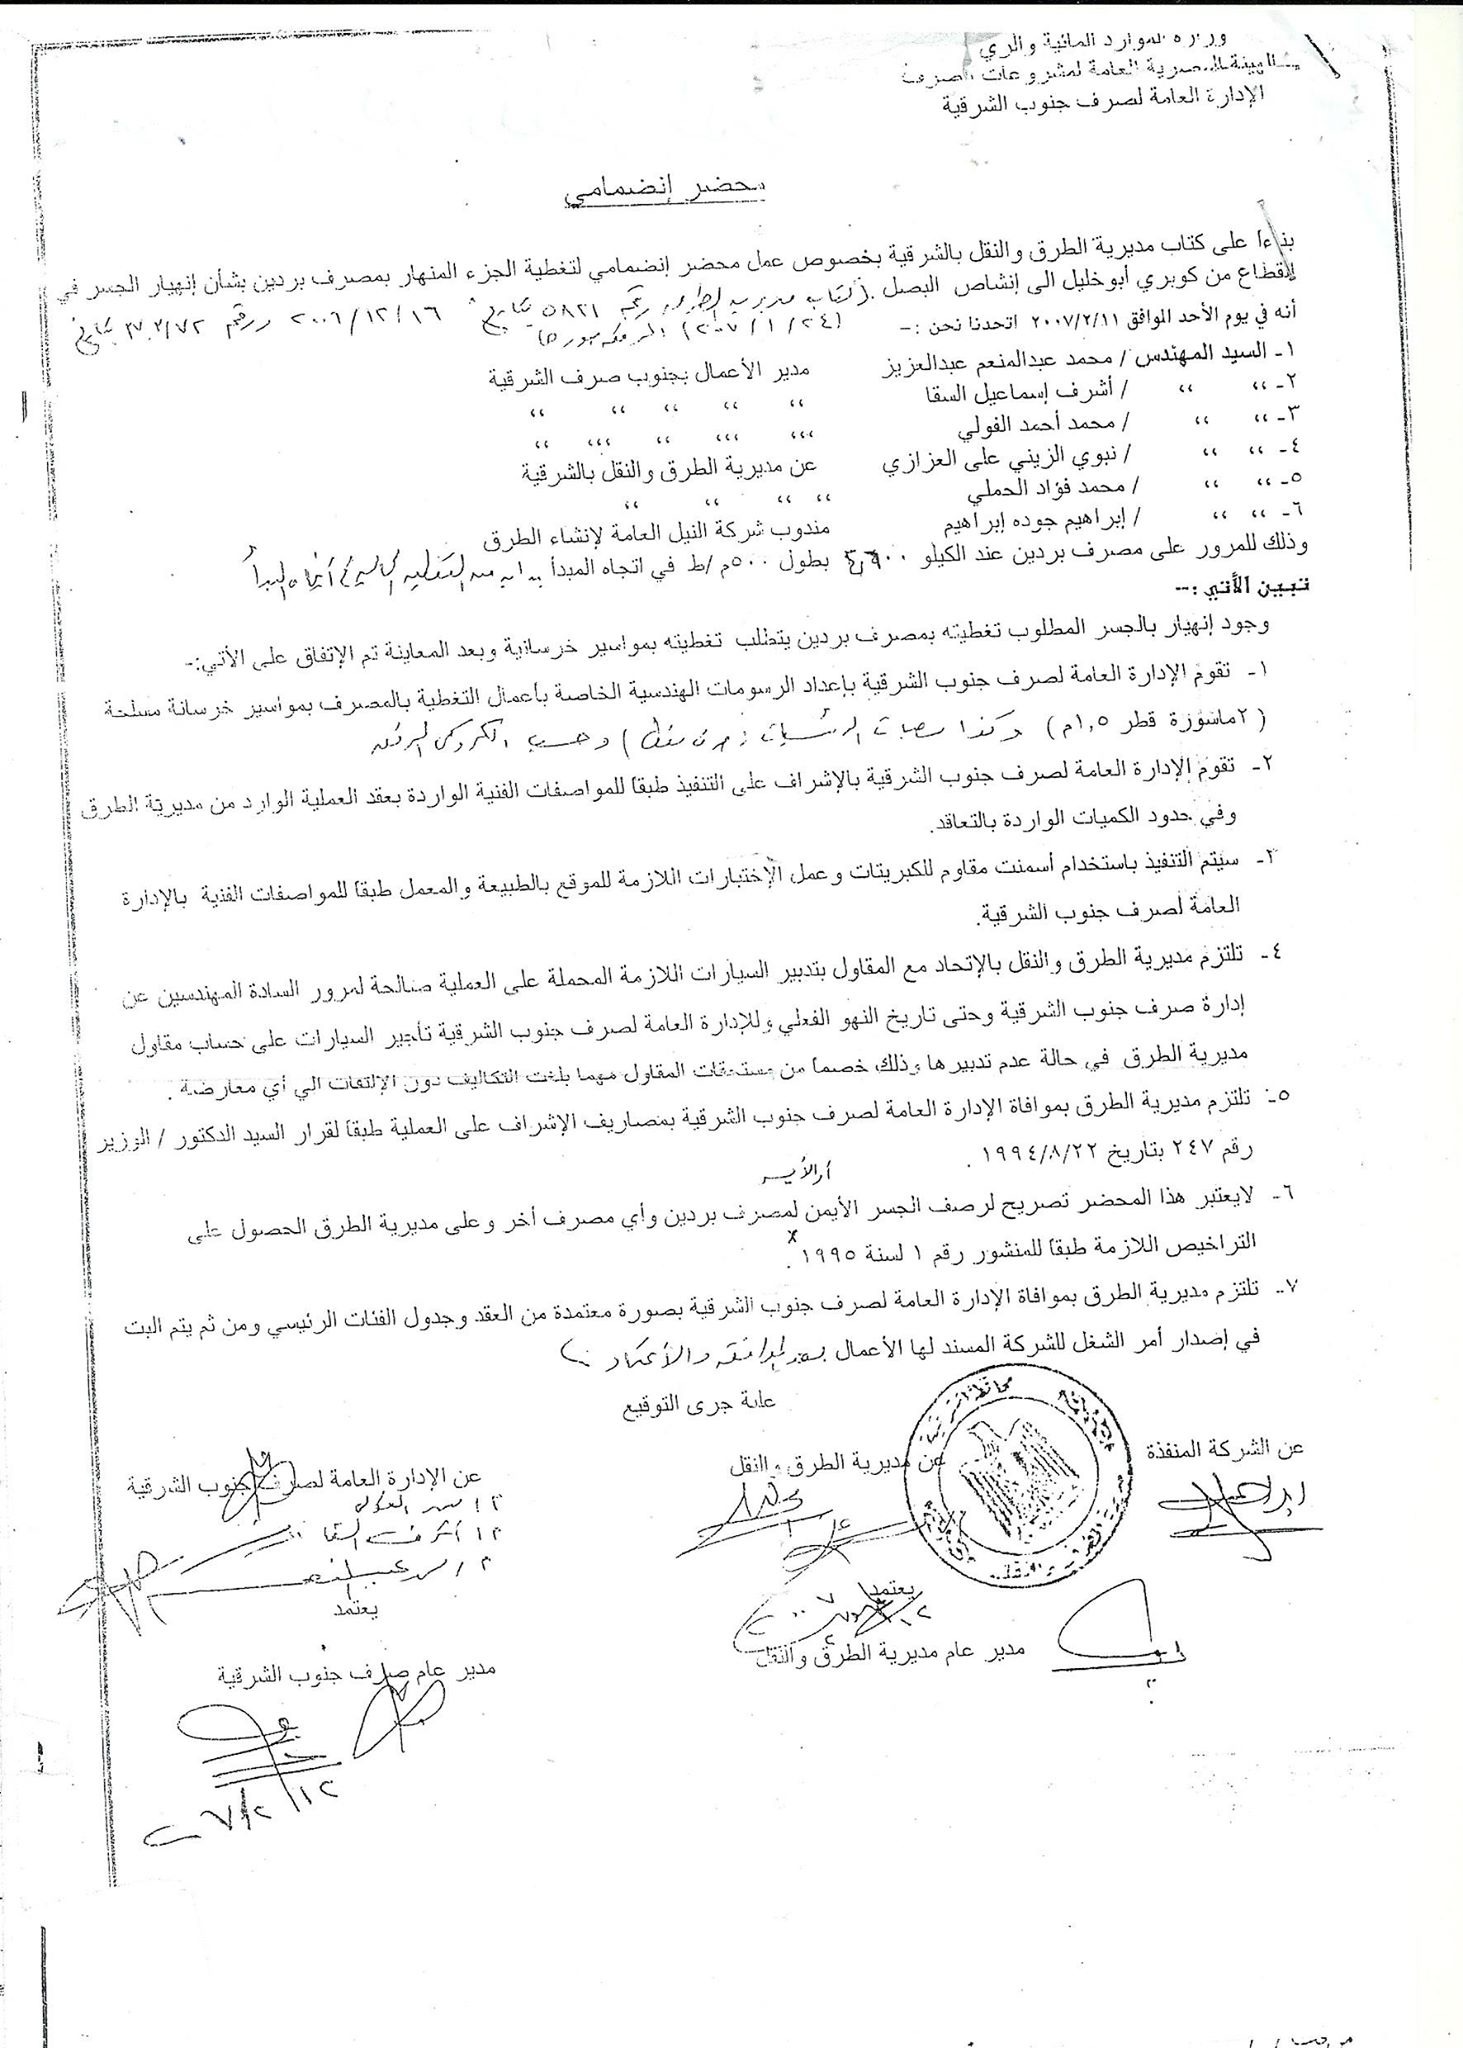 وزارة الموارد المائية والري
الهيئة المصرية العامة لمشروعات الصرف
الإدارة العامة لصرف جنوب الشرقية
محضر إنضمامي
بناءا على كتاب مديرية الطرق والنقل بالشرقية بخصوص عمل محضر إنضمامي لتغطية الجزء المنهار بمصرف بردين بشأن إنهيار الجسر في
القطاع من كوبري أبوخليل الى إنشاص البصل . (كتاب مديرية الطرق رقم ٥٨٢١ بتاريخ ٢٠٠٦/١٢/١٦ ورقم بتاريخ
٢٠٠٧/١/٢٤)
أنه في يوم الأحد الموافق ٢٠٠٧/٢/١١ اتحدنا نحن :-
١- السيد المهندس / محمد عبدالمنعم عبدالعزيز مدير الأعمال بجنوب صرف الشرقية
٢- ،، ،، / أشرف إسماعيل السقا ،، ،، ،، ،، ،،
٣- ،، ،، / محمد أحمد الفولي ،،، ،،، ،، ،،، ،،
٤- ،، ،، / نبوي الزيني على العزازي عن مديرية الطرق والنقل بالشرقية
٥- ،، ،، / محمد فؤاد الحملي ،، ،، ،، ،،
٦- ،، ،، / إبراهيم جوده إبراهيم مندوب شركة النيل العامة لإنشاء الطرق
وذلك للمرور على مصرف بردين عند الكيلو بطول ٥٠٠م /ط في اتجاه المبدأ بداية من التغطية
تبين الأتي :--
وجود إنهيار بالجسر المطلوب تغطيته بمصرف بردين يتطلب تغطيته بمواسير خرسانية وبعد المعاينة تم الإتفاق على الأتي:-
١- تقوم الإدارة العامة لصرف جنوب الشرقية بإعداد الرسومات الهندسية الخاصة بأعمال التغطية بالمصرف بمواسير خرسانة مسلحة
( ٢ماسورة قطر ١,٥م ) وكذا وحسب الكروكى المرفق
٢- تقوم الإدارة العامة لصرف جنوب الشرقية بالإشراف على التنفيذ طبقا للمواصفات الفنية الواردة بعقد العملية الوارد من مديرية الطرق
وفي حدود الكميات الواردة بالتعاقد.
٣- سيتم التنفيذ باستخدام أسمنت مقاوم للكبريتات وعمل الإختبارات اللازمة للموقع بالطبيعة والمعمل طبقا للمواصفات الفنية بالإدارة
العامة لصرف جنوب الشرقية.
٤- تلتزم مديرية الطرق والنقل بالإتحاد مع المقاول بتدبير السيارات اللازمة المحملة على العملية صالحة لمرور السادة المهندسين عن
إدارة صرف جنوب الشرقية وحتى تاريخ النهو الفعلي وللإدارة العامة لصرف جنوب الشرقية تأجير السيارات على حساب مقاول
مديرية الطرق في حالة عدم تدبيرها وذلك خصما من مستحقات المقاول مهما بلغت التكاليف دون الإلتفات الي أي معارضة .
٥- تلتزم مديرية الطرق بموافاة الإدارة العامة لصرف جنوب الشرقية بمصاريف الإشراف على العملية طبقا لقرار السيد الدكتور / الوزير
رقم ٢٤٧ بتاريخ ١٩٩٤/٨/٢٢ .
أو الأيسر
٦- لايعتبر هذا المحضر تصريح لرصف الجسر الأيمن لمصرف بردين وأي مصرف أخر وعلى مديرية الطرق الحصول على
التراخيص اللازمة طبقا للمنشور رقم ١ لسنة ١٩٩٥ .
٧- تلتزم مديرية الطرق بموافاة الإدارة العامة لصرف جنوب الشرقية بصورة معتمدة من العقد وجدول الفئات الرئيسي ومن ثم يتم البت
في إصدار أمر الشغل للشركة المسند لها الأعمال بعد الموافقة والاعتماد
علية جرى التوقيع
عن الشركة المنفذة عن مديرية الطرق والنقل عن الإدارة العامة لصرف جنوب الشرقية
محافظة الشرقية
مديرية الطرق والنقل
ابراهيم
أشرف السقا
يعتمد يعتمد
مدير عام مديرية الطرق والنقل مدير عام صرف جنوب الشرقية
٢٠٠٧/٢/١٢